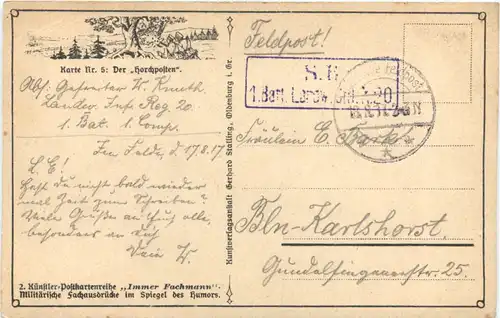 Karte Nr. 5: Der „Horchposten“.
Abs: Gefreiter W. Knuth
Landw. Inf. Reg 20.
1. Bat. 1. Comp.
Im Felde, d. 17.8.17
L. E!
Hast Du nicht bald wieder
mal Zeit zum Schreiben?
Viele Grüße an Euch alle,
besonders an Dich
Dein W.
2. Künstler-Postkartenreihe „Immer Fachmann“
Militärische Fachausdrücke im Spiegel des Humors.
Kunstverlagsanstalt Gerhard Stalling, Oldenburg i. Gr.
Feldpost!
S. B.
1. Batl. Landw. Inf. 20
Fräulein E.
Bln-Karlshorst.
Gundelfingenerstr. 25.